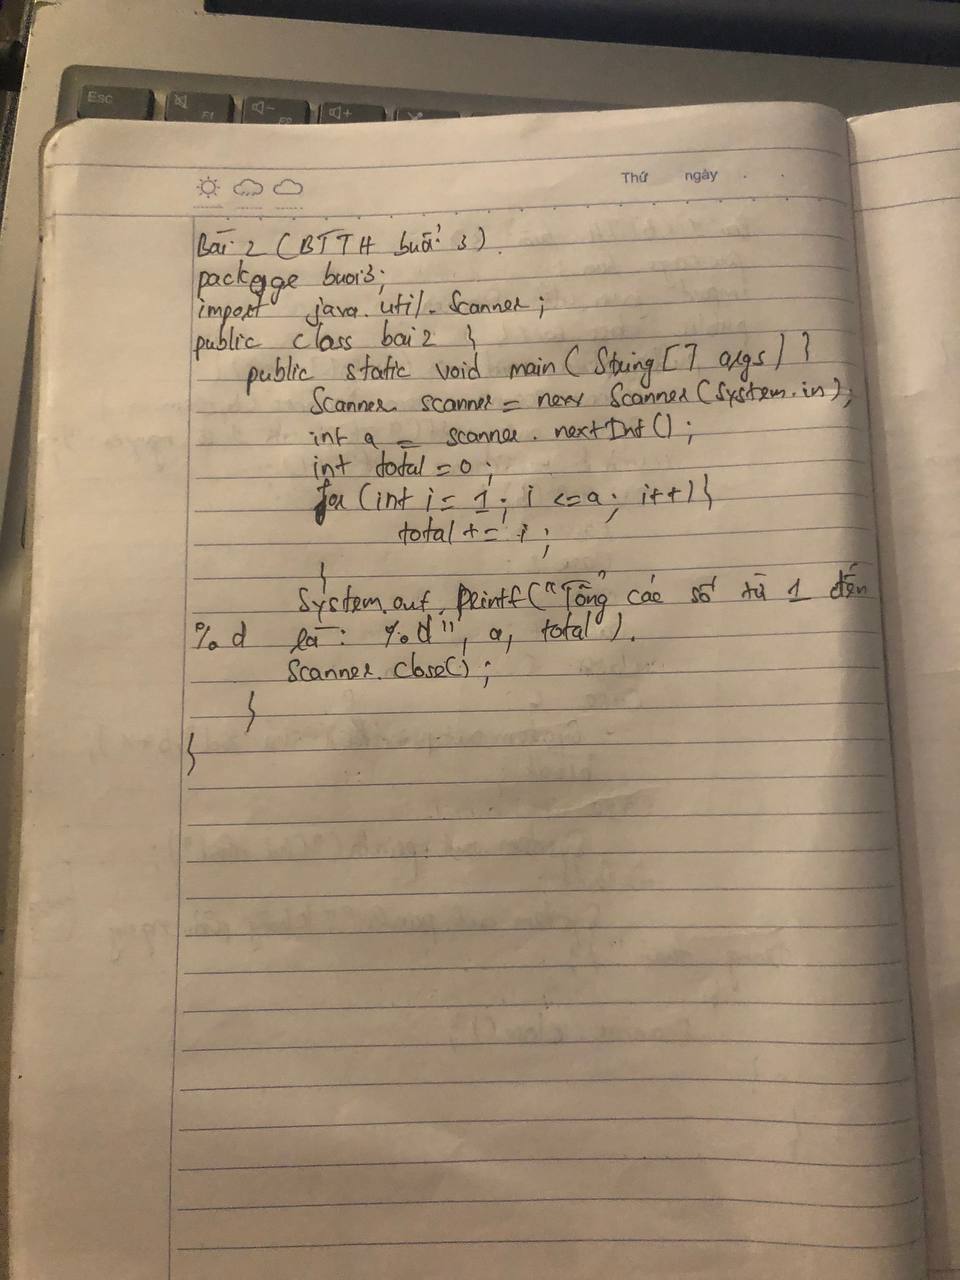 Esc
F1
F2
Thứ ngày
Bài 2 (BTTH buổi 3).
package buoi3;
import java.util.Scanner;
public class bai2 {
public static void main(String[] args) {
Scanner scanner = new Scanner(System.in);
int a = scanner.nextInt();
int total = 0;
for (int i = 1; i <= a; i++) {
total += i;
}
System.out.printf("Tổng các số từ 1 đến
%d là: %d", a, total).
Scanner.close();
}
}